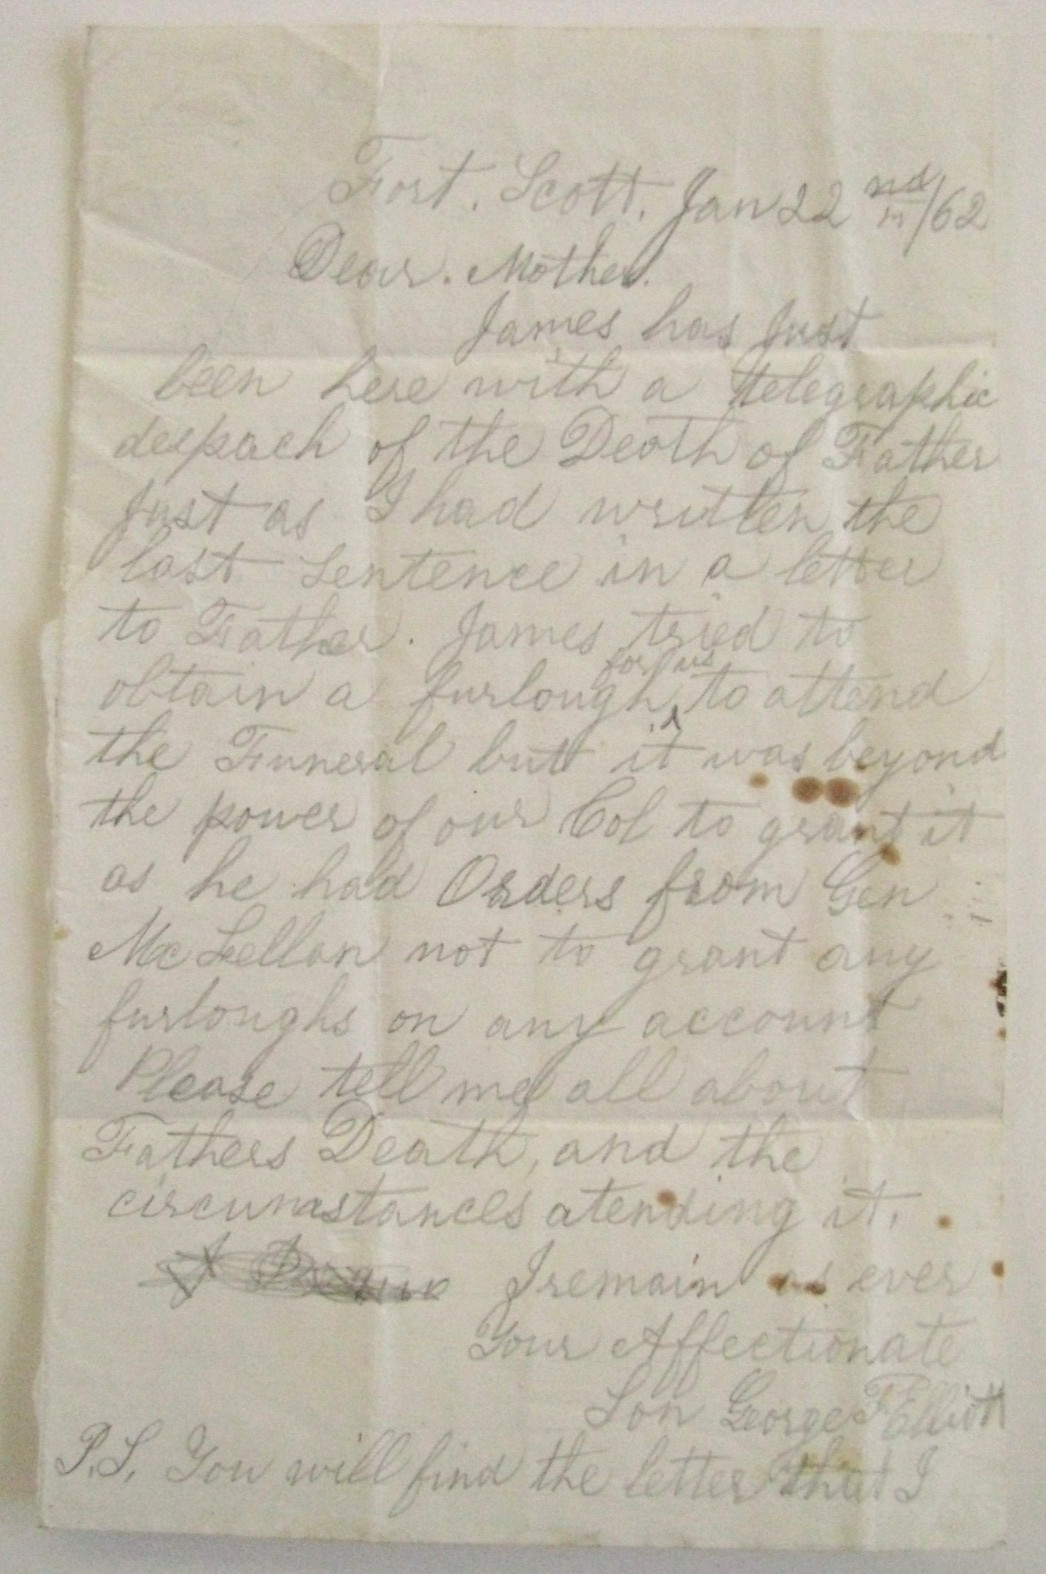 Fort. Scott. Jan 22 nd /62
Dear. Mother.
James has just
been here with a telegraphic
despach of the Death of Father
just as I had written the
last sentence in a letter
to Father. James tried to
for us
obtain a furlough ^ to attend
the Funeral butt it was beyond
the power of our Col to grant it
as he had Orders from Gen
McLellan not to grant any
furloughs on any account
Please tell me all about
Fathers Death, and the
circumstances atending it.
I remain as ever
Your Affectionate
Son George F Elliott
P.S. You will find the letter that I